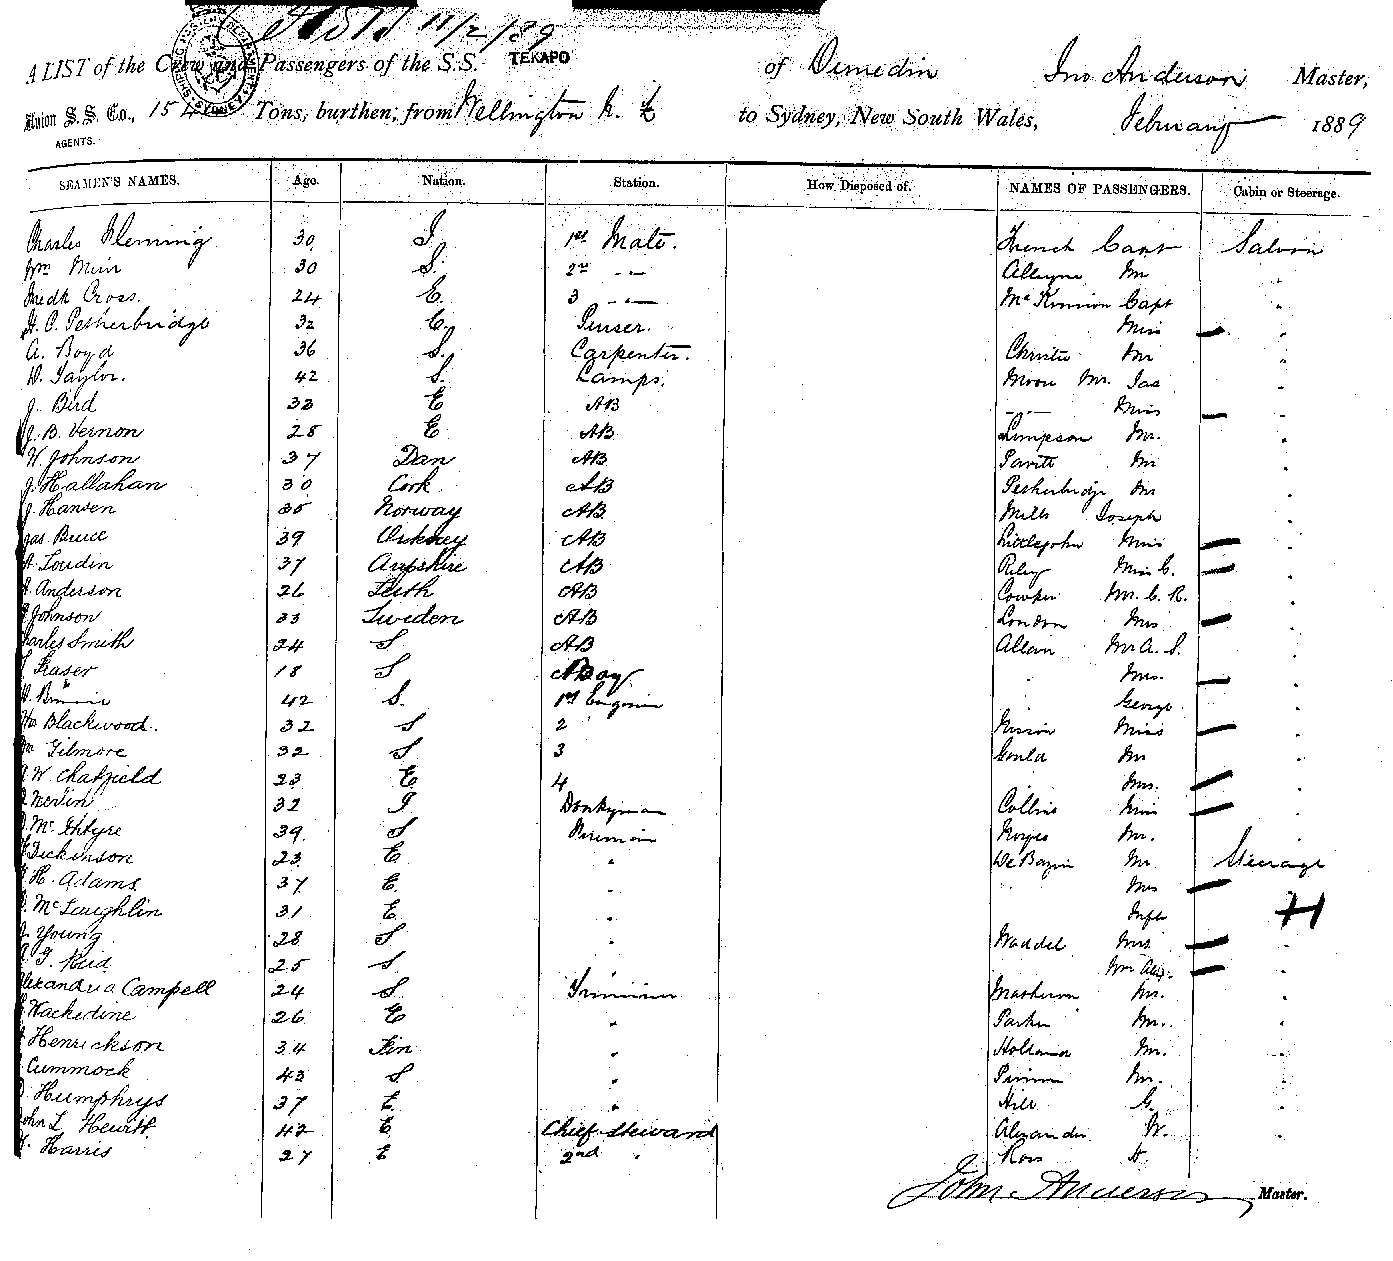 11/2/89
A LIST of the Crew and Passengers of the S.S. TEKAPO of Dunedin Jno Anderson Master,
Union S. S. Co., Tons, burthen; from Wellington N. Z to Sydney, New South Wales, February 1889
AGENTS.
SEAMEN'S NAMES. Age. Nation. Station. How Disposed of. NAMES OF PASSENGERS. Cabin or Steerage.
Charles Fleming 30 I 1st Mate. French Capt Saloon
Wm Muir 30 S. 2nd -"- Alleyne Mr "
Fredk Cross. 24 E. 3 -"- McKinnon Capt "
H. C. Petherbridge 32 E. Purser. Miss "
A. Boyd 36 S. Carpenter. Christie Mr "
W. Taylor. 42 S. Lamps. Moon Mr. Jas "
J. Bird 33 E AB -"- Miss "
J. B. Vernon 28 E AB Simpson Mr. "
W. Johnson 37 Dan AB Mr "
J. Hallahan 30 Cork AB Petherbridge Mr "
J. Hansen 35 Norway AB Mills Joseph "
Jas Bruce 39 Orkney AB Littlejohn Miss "
Loudin 37 AB Riley Miss C. "
Anderson 26 Leith AB Cowper Mr. C. R. "
Johnson 33 Sweden AB London Mrs "
Charles Smith 24 S AB Allan Mr A. S. "
Fraser 18 S Boy " Mrs. "
W. 42 S. 1st Engineer George "
Blackwood. 32 S 2 Miss "
Gilmore 32 S 3 Gould Mr "
W. Chatfield 23 E 4 Mrs. "
Nevin 32 I Donkyman Collins Miss "
McIntyre 39. S Fireman Noyes Mr. "
Dickinson 23 E " De Bazin Mr. Steerage
H. Adams 37 E. " " Mrs
McLaughlin 31 E " Infr H
J Young 28 S " Waddel Mrs "
G. Reid 25 S " "
Alexandria Campell 24 S Trimmer Matheson Mr. "
Hackedine 26 E " Parker Mr. "
Henrickson 34 Fin " Holland Mr. "
Cummock 43 S " Mr. "
Humphrys 37 E " Hill G. "
John L Hewitt. 42 E Chief Steward Alexander W. "
Harris 27 E 2nd " Ross H
John Anderson Master.